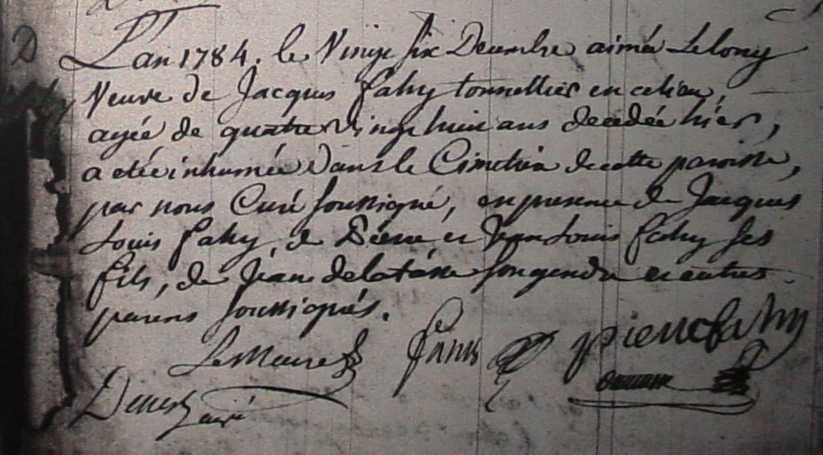 D
L'an 1784. le Vingt six Decembre aimée Lelong
Veuve de Jacques fahy tonnellier en ce lieu,
agée de quatre Vingt huit ans decedée hier,
a eté inhumée Dans le Cimetiére de cette paroisse,
par nous Curé soussigné, en presence de Jacques
Louis fahy, de Pierre et Jean Louis fahy ses
fils, de Jean delatasse son gendre et autres
parens soussignés.
LeMaire
pierre fahy
curé